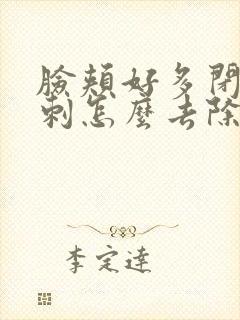 臉頰好多閉
刺怎麼去除
李定達